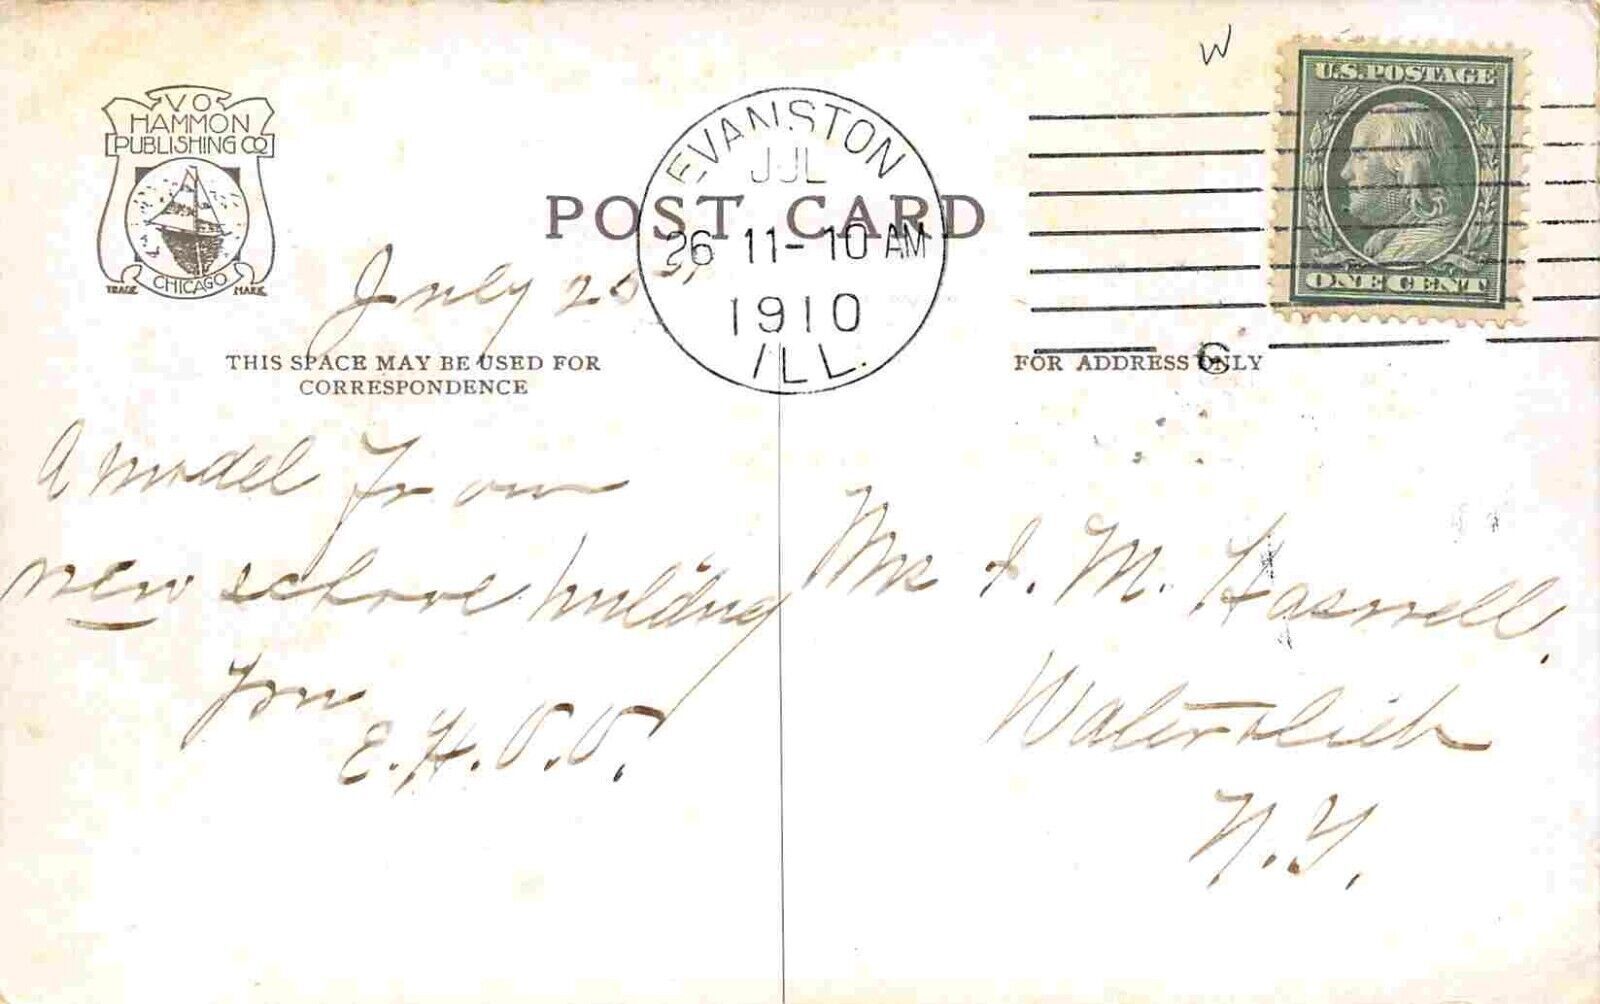 V O
HAMMON
PUBLISHING CO
CHICAGO
TRADE MARK
W
U.S. POSTAGE
ONE CENT
EVANSTON
JUL
26 11-10 AM
1910
ILL.
POST CARD
July
THIS SPACE MAY BE USED FOR
CORRESPONDENCE
A model for our
new school building
Your
E. H.
FOR ADDRESS ONLY
G
M. Haswell,
N. Y.